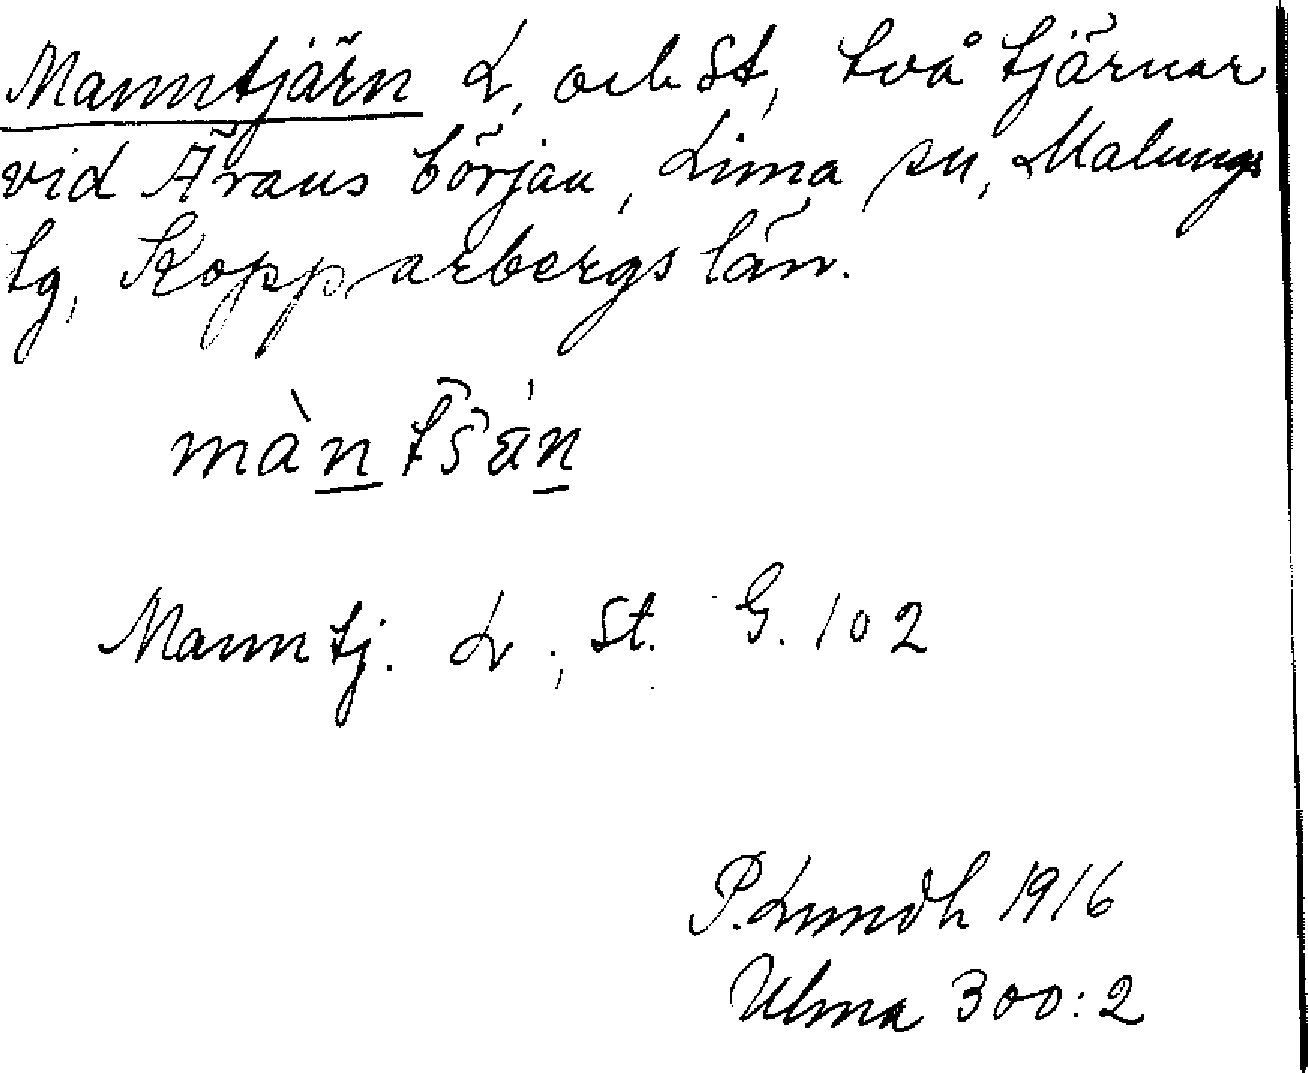 Manntjärn L. och St., två tjärnar
vid Ärans början, Lima sn, Malungs
tg, Kopparbergs län.
Manntj. L.; St. G. 102
P. Lundh 1916
Ulma 300:2